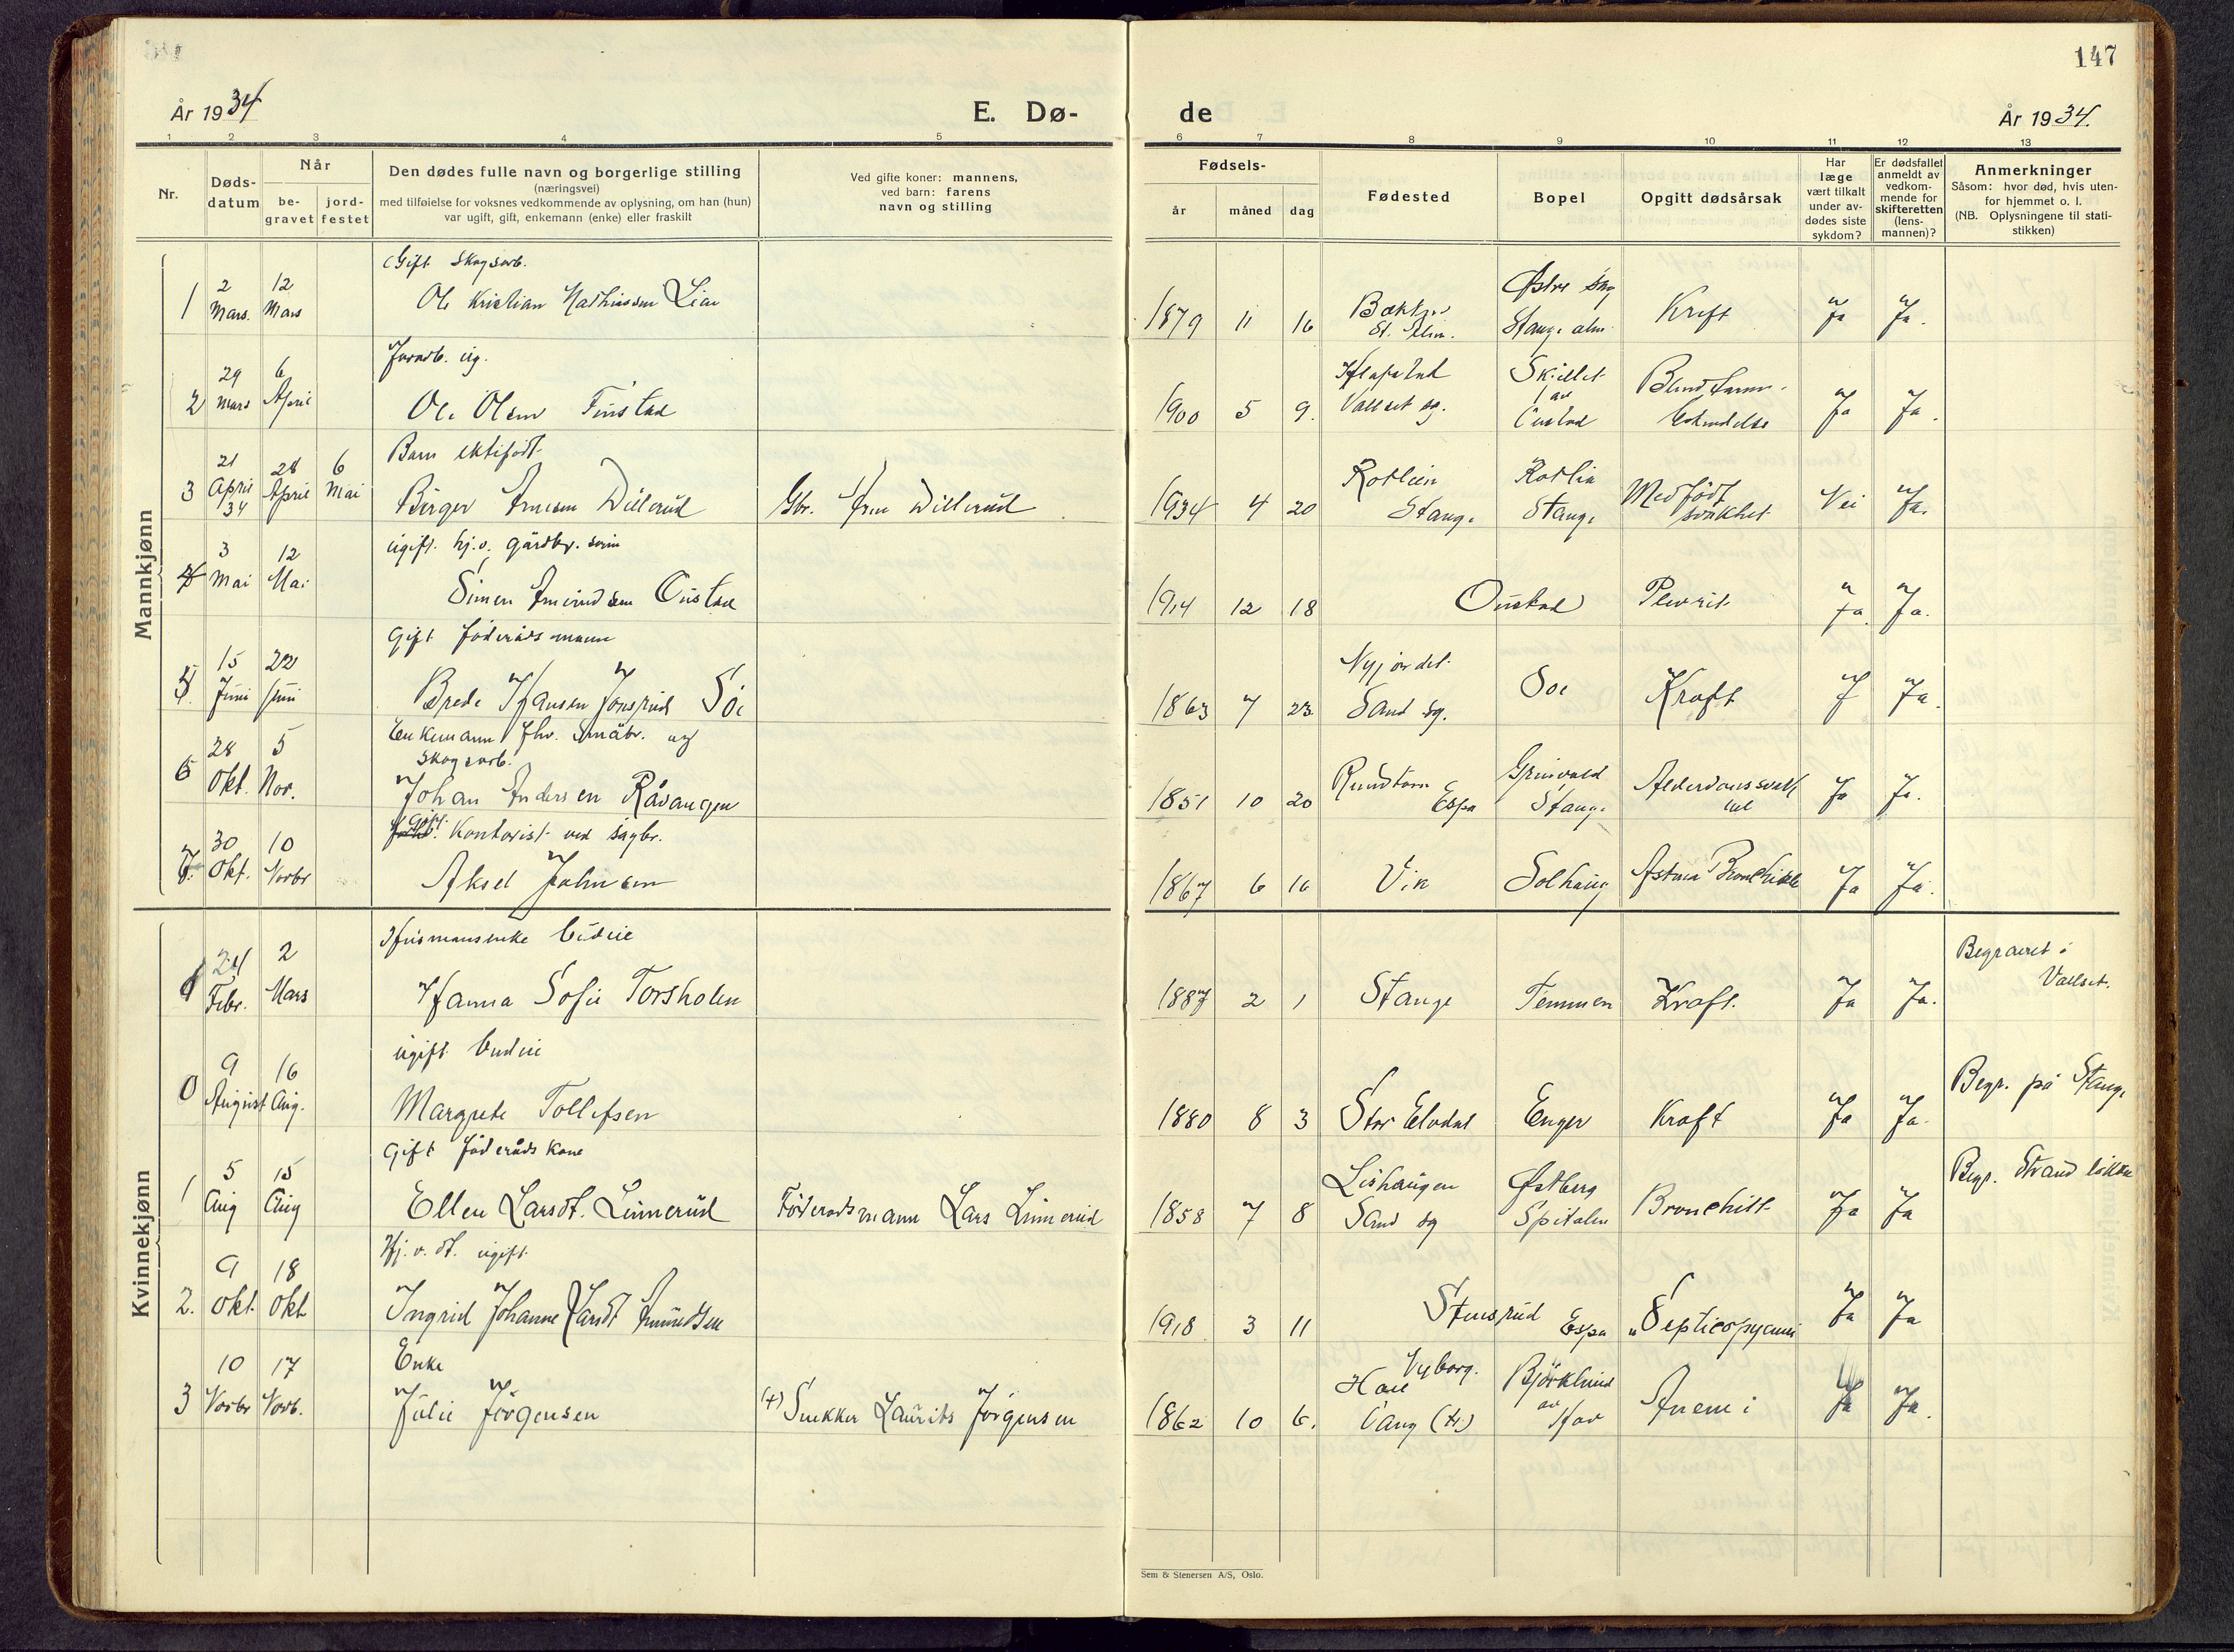 147
År 1934
E. Dø-
de
År 1934.
1 2 3 4 5 6 7 8 9 10 11 12 13
Nr.
Døds-
datum
Når
be-
gravet
jord-
festet
Den dødes fulle navn og borgerlige stilling
(næringsvei)
med tilføielse for voksnes vedkommende av oplysning, om han (hun)
var ugift, gift, enkemann (enke) eller fraskilt
Ved gifte koner: mannens,
ved barn: farens
navn og stilling
Fødsels-
år måned dag
Fødested
Bopel
Opgitt dødsårsak
Har
læge
vært tilkalt
under av-
dødes siste
sykdom?
Er dødsfallet
anmeldt av
vedkom-
mende for
skifteretten
(lens-
mannen)?
Anmerkninger
Såsom: hvor død, hvis uten-
for hjemmet o. l.
(NB. Oplysningene til stati-
stikken)
Mannkjønn
Gift skogsarb.
1 2 Mars. 12 Mars Ole Kristian Mathiassen Lien 1879 11 16 St. Alm. Østre Sag Stange alm. Kreft Ja Ja.
ug.
2 29 Mars 6 April Ole Olsen Finstad 1900 5 9. Vallset sg. Skillet av Ja Ja.
Barn ektefødt
3 21 April 34 28 April 6 Mai Birger Arnesen Dillerud Gbr. Arne Dillerud 1934 4 20 Rotlien Stange Rotlia Stange Medfødt svakhet Nei Ja.
ugift. hj.v. gårdbr. sønn
4 3 Mai 12 Mai Simen Amundsen Oustad 1914 12 18 Oustad Plevrit Ja. Ja.
Gift föderådsmann
5. 15 Juni 22 Juni Brede Hansen Jonsrud Soe 1863 7 23. Nyjordet Sand sg. Soe Kræft J Ja.
Enkemann fhv. småbr. og
skogsarb.
6 28 Okt. 5 Nov. Johan Andersen Råvangen 1851 10 20 Rundtom Espa Grinvold Stange Alderdomssvakhet Ja Ja.
Gift. Kontorist ved sagbr.
7. 30 Okt. 10 Novbr Aksel Johnsen 1867 6 16 Vik Solhaug Astma Bronchitt Ja Ja.
Kvinnekjønn
Husmannsenke budeie
24 Febr. 2 Mars Hanna Sofie Torsholen 1887 2 1 Stange Temmen Kræft. Ja Ja. Begravet i
Vallset.
ugift budeie
0 9 August 16 Aug. Margrete Tollefsen 1880 8 3 Stor Elvdal Enger Kræft Ja Ja. Begr. på Stange
Gift föderåds kone
1 5 Aug 15 Aug Ellen Larsdt. Linnerud Föderådsmann Lars Linnerud 1858 7 8 Lishaugen Sand sg Østberg Spitalen Bronchitt Ja Ja Begr. Strandlökka
Hj. v. dt. ugift
2. 9 Okt. 18 Okt Ingrid Johanne Amundsen 1918 3 11 Stensrud Espa Ja Ja
Enke
3 10 Novbr 17 Novb. Julie Jörgensen (+) Snekker Laurits Jörgensen 1862 10 6. Vyborg. Vang Björklund av Anemi Ja Ja.
Sem & Stenersen A/S, Oslo.